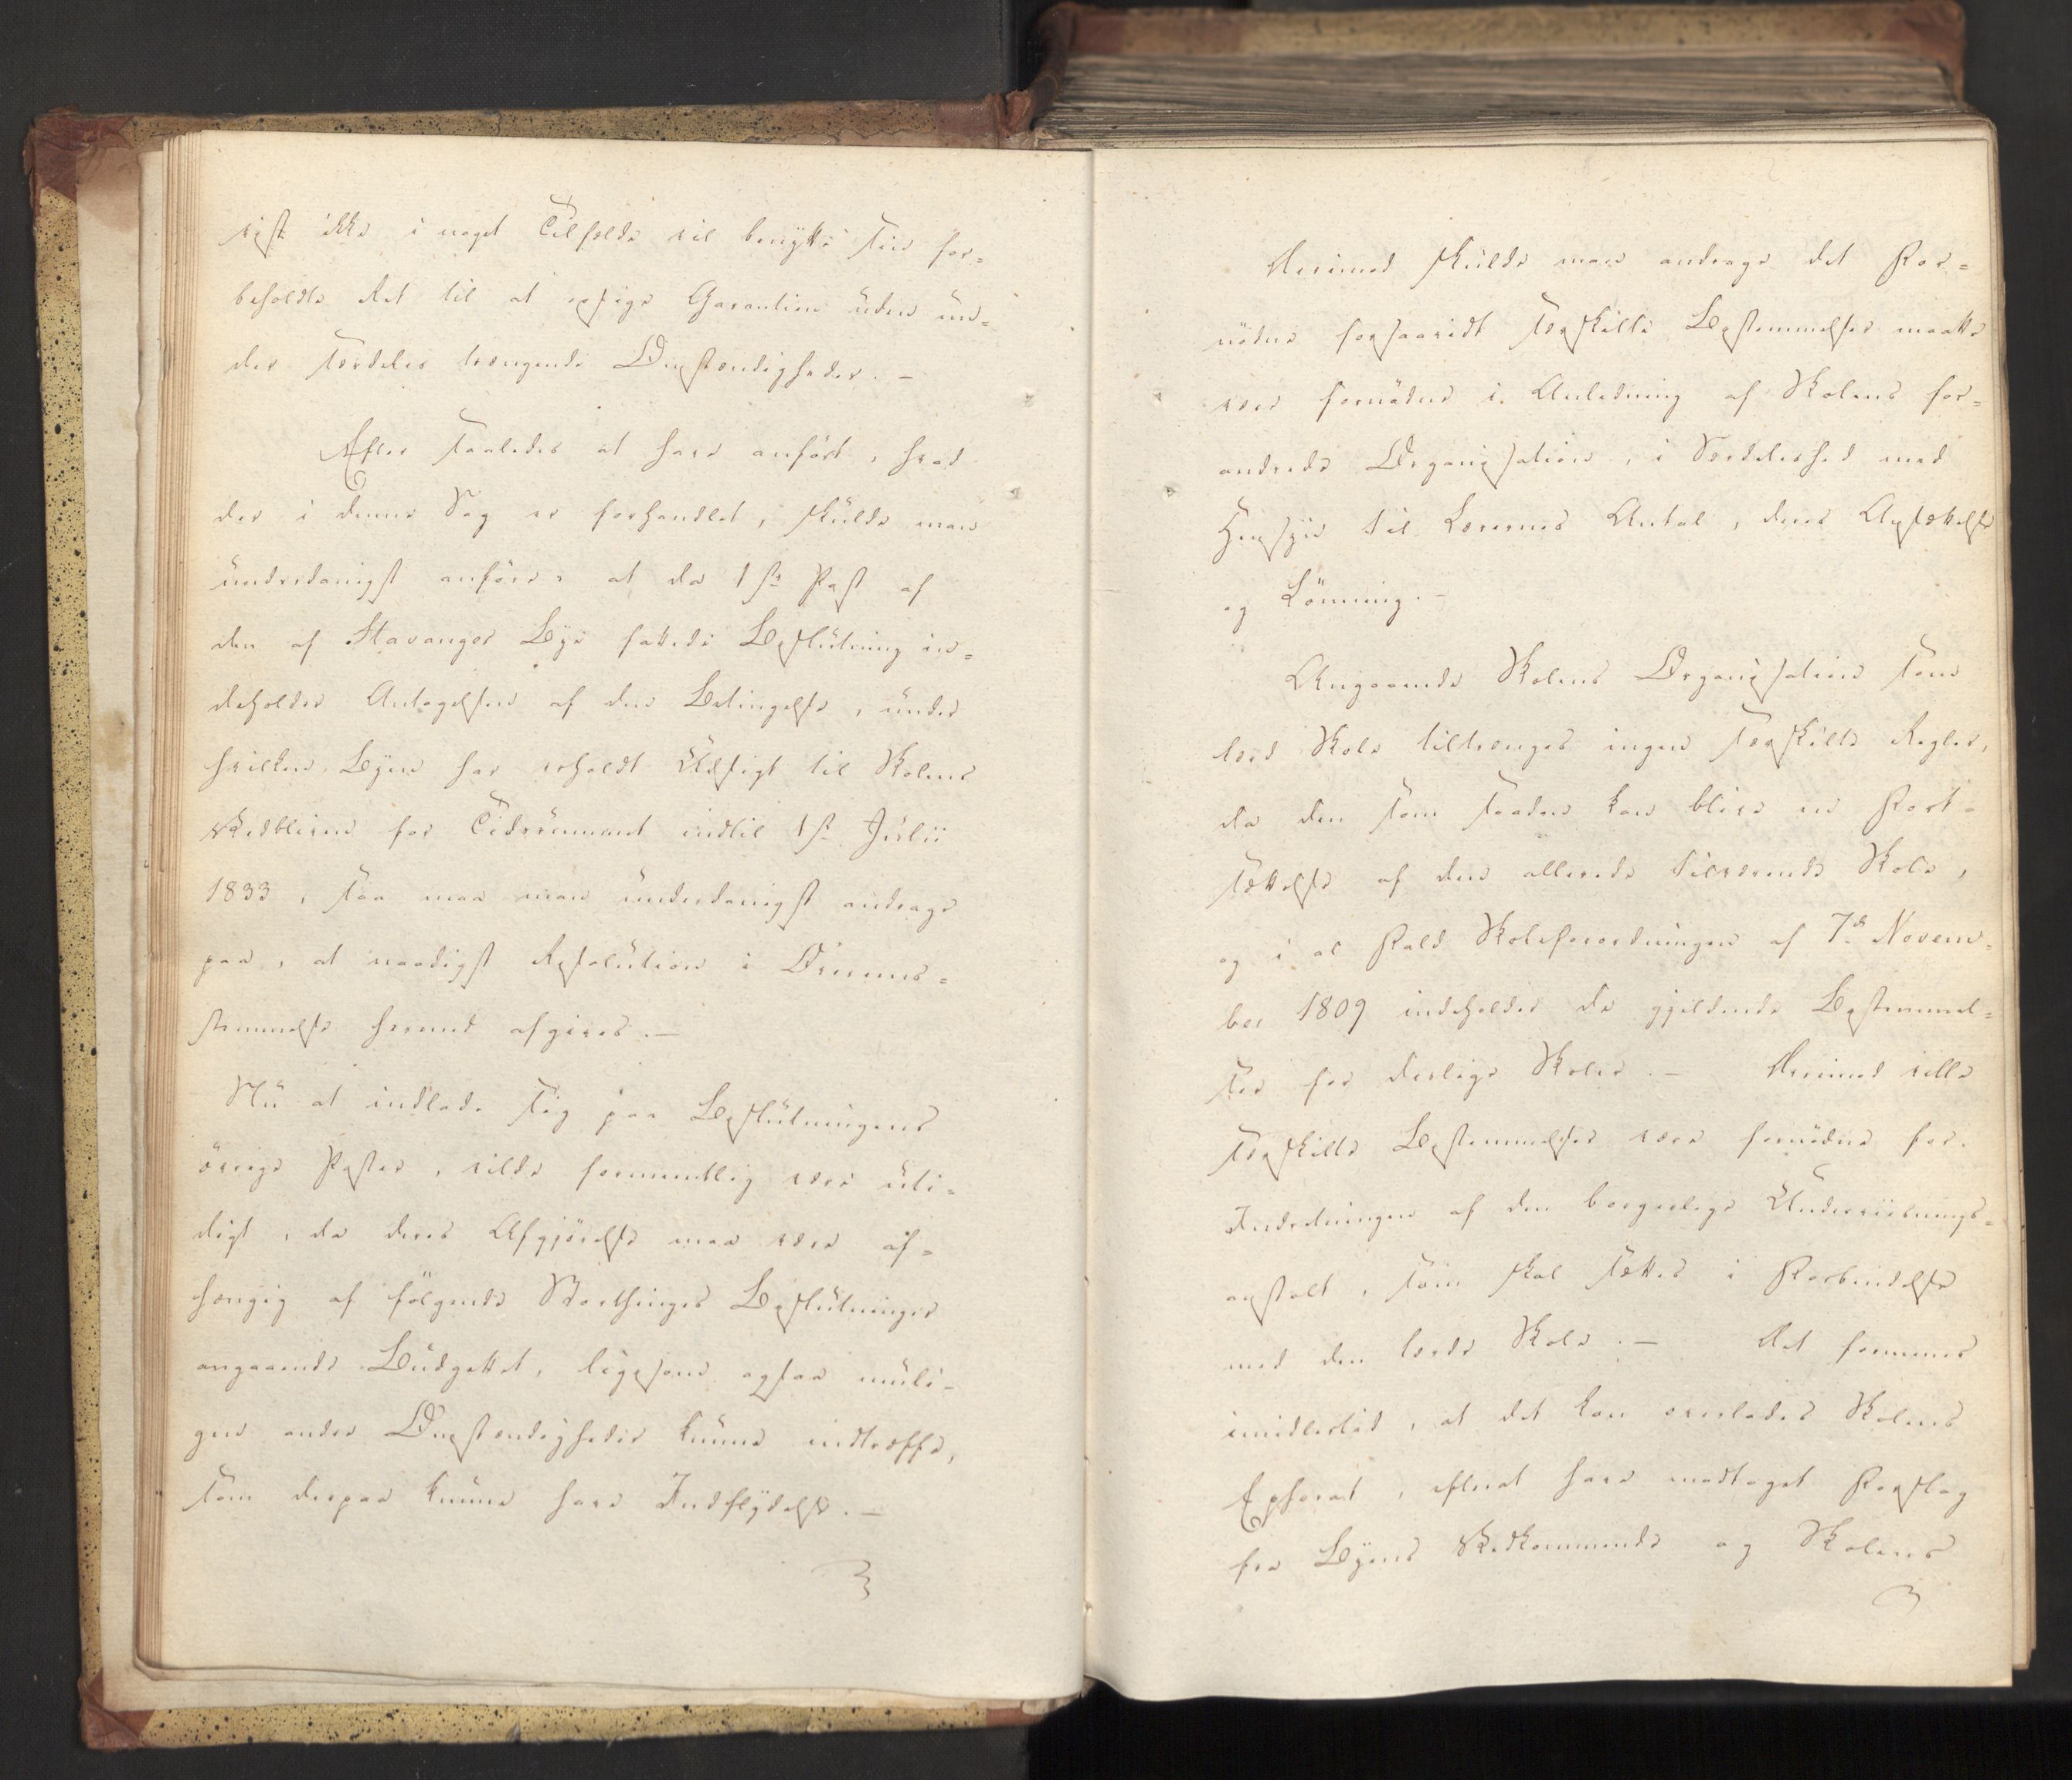 vist ikke i noget Tilfælde vil benytte sin for=
beholdte Ret til at opsige Garantien uden un=
der særdeles trængende Omstændigheder. —
Efter saaledes at have anført, hvad
der i denne Sag er forhandlet, skulde man
underdanigst anføre: at da 1ste Post af
den af Stavanger Bye fattede Beslutning in=
deholder Antagelsen af den Betingelse, under
hvilken Byen har erholdt Udsigt til Skolens
Vedbliven for Tidsrummet indtil 1ste Julii
1833, saa maa man underdanigst andrage
paa, at naadigst Resolution i Overeens=
stemmelse hermed afgives. —
Nu at indlade sig paa Beslutningens
øvrige Poster, vilde formeentlig være uti=
digt, da deres Afgjørelse maa være af=
hængig af følgende Storthinges Beslutninger
angaaende Budgettet, ligesom ogsaa muli=
gen andre Omstændigheder kunne indtræffe,
som derpaa kunne have Indflydelse. —
Derimod skulde man andrage det For=
nødne forsaavidt særskilte Bestemmelser maatte
være fornødne i Anledning af Skolens for=
andrede Organisation, i Særdeleshed med
Hensyn til Lærernes Antal, deres Ansættelse
og Lønning. —
Angaaende Skolens Organisation som
lærd Skole tiltrænges ingen særskilte Regler,
da den som saadan kan blive en Fort=
sættelse af den allerede tilværende Skole,
og i al Fald Skoleforordningen af 7de Novem=
ber 1809 indeholder de gjeldende Bestemmel=
ser for deslige Skoler. — Derimod ville
særskilte Bestemmelser være fornødne for
Indretningen af den borgerlige Underviisnings=
anstalt, som skal sættes i Forbindelse
med den lærde Skole. — Det formenes
imidlertid, at det kan overlades Skolens
Ephorat, efterat have modtaget Forslag
fra Byens Vedkommende og Skolens